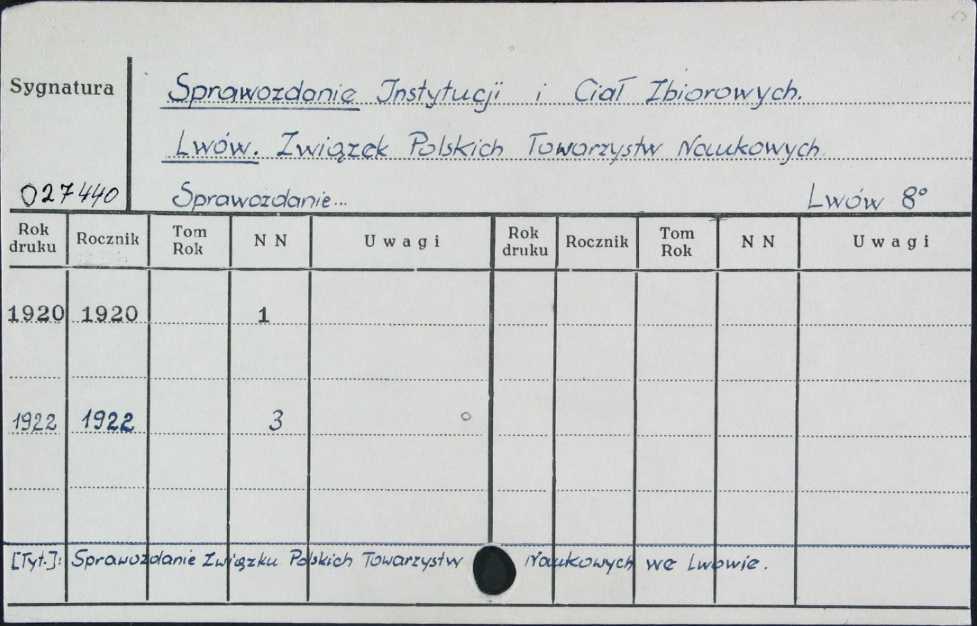 Sygnatura
Sprawozdanie Instytucji i Ciał Zbiorowych.
Lwów. Związek Polskich Towarzystw Naukowych
027440 Sprawozdanie... Lwów 8°
Rok druku Rocznik Tom Rok N N Uwagi Rok druku Rocznik Tom Rok N N Uwagi
1920 1920 1
1922 1922 3
[Tyt.]: Sprawozdanie Związku Polskich Towarzystw Naukowych we Lwowie.